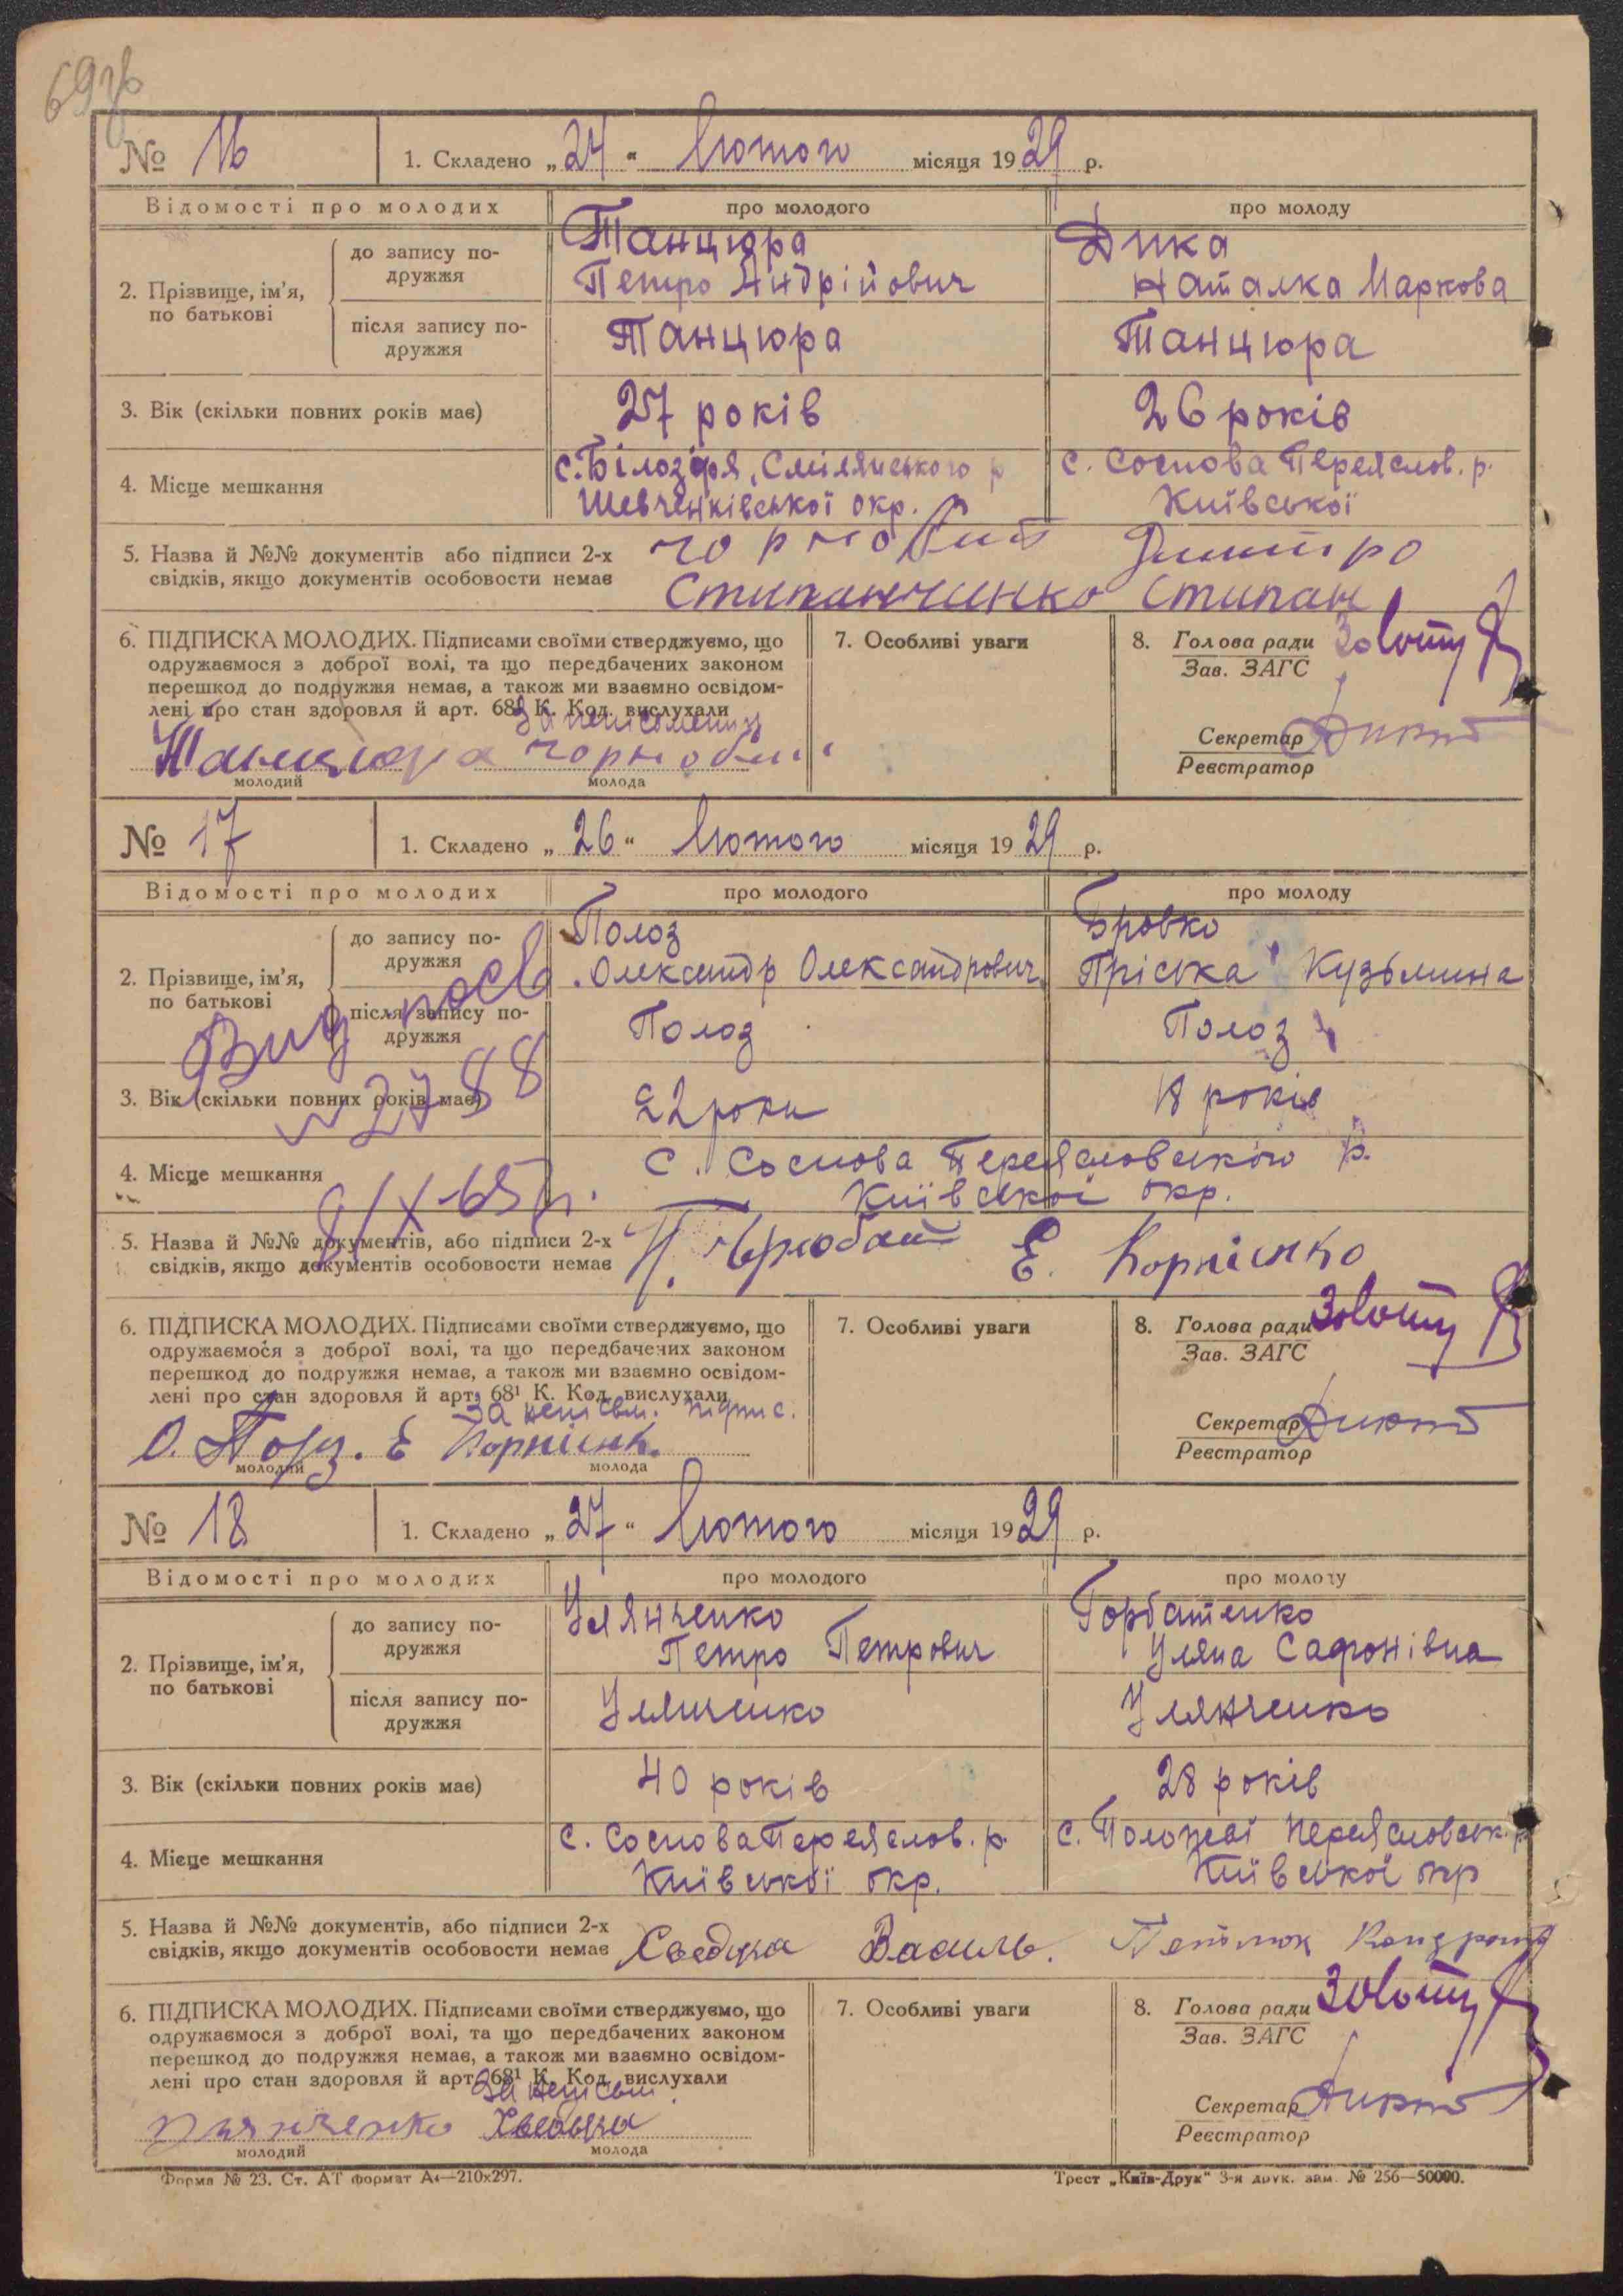 69зв
№ 16 1. Складено „24“ Лютого місяця 1929 р.
Відомості про молодих про молодого про молоду
2. Прізвище, ім’я, по батькові
до запису по-
дружжя
Танцюра
Петро Андрійович
Дика
Наталка Маркова
після запису по-
дружжя
Танцюра
Танцюра
3. Вік (скільки повних років має) 27 років 26 років
4. Місце мешкання
с. Білозір'я, Смілянського р
Шевченківської окр.
с. Соснова Переяслов. р.
Київської
5. Назва й №№ документів або підписи 2-х
свідків, якщо документів особовости немає
Чорнобит Дмитро
Стипанчинко Стипан
6. ПІДПИСКА МОЛОДИХ. Підписами своїми стверджуємо, що
одружаємося з доброї волі, та що передбачених законом
перешкод до подружжя немає, а також ми взаємно освідом-
лені про стан здоров'я й арт. 68¹ К. Код. вислухали
Танцюра
молодий молода
7. Особливі уваги
8. Голова ради
Зав. ЗАГС
Секретар
Реєстратор
№ 17 1. Складено „26“ Лютого місяця 1929 р.
Відомості про молодих про молодого про молоду
2. Прізвище, ім’я,
по батькові
до запису по-
дружжя
Полоз
Олександр Олександрович
Бровко
Пріська Кузьмина
після запису по-
дружжя
Полоз
Полоз
3. Вік (скільки повних років має) 22 роки 18 років
4. Місце мешкання
с. Соснова Переясловського р.
Київської окр.
5. Назва й №№ документів, або підписи 2-х
свідків, якщо документів особовости немає
Е. Корнієнко
6. ПІДПИСКА МОЛОДИХ. Підписами своїми стверджуємо, що
одружаємося з доброї волі, та що передбачених законом
перешкод до подружжя немає, а також ми взаємно освідом-
лені про стан здоровля й арт. 68¹ К. Код. вислухали
за неписьм. підпис.
молодий молода
7. Особливі уваги
8. Голова ради
Зав. ЗАГС
Секретар
Реєстратор
№ 18 1. Складено „27“ Лютого місяця 1929 р.
Відомості про молодих про молодого про молоду
2. Прізвище, ім’я,
по батькові
до запису по-
дружжя
Улянченко
Петро Петрович
Горбатенко
Уляна Сафонівна
після запису по-
дружжя
Улянченко
Улянченко
3. Вік (скільки повних років має) 40 років 28 років
4. Місце мешкання
с. Соснова Переяслов. р.
Київської окр.
с. Положаї Переясловськ. р
Київської окр
5. Назва й №№ документів, або підписи 2-х
свідків, якщо документів особовости немає
Василь.
6. ПІДПИСКА МОЛОДИХ. Підписами своїми стверджуємо, що
одружаємося з доброї волі, та що передбачених законом
перешкод до подружжя немає, а також ми взаємно освідом-
лені про стан здоровля й арт. 68¹ К. Код. вислухали
молодий молода
7. Особливі уваги
8. Голова ради
Зав. ЗАГС
Секретар
Реєстратор
Форма № 23. Ст. АТ формат А₄—210x297.
Трест „Київ-Друк“ 3-я друк. зам. № 256—50000.